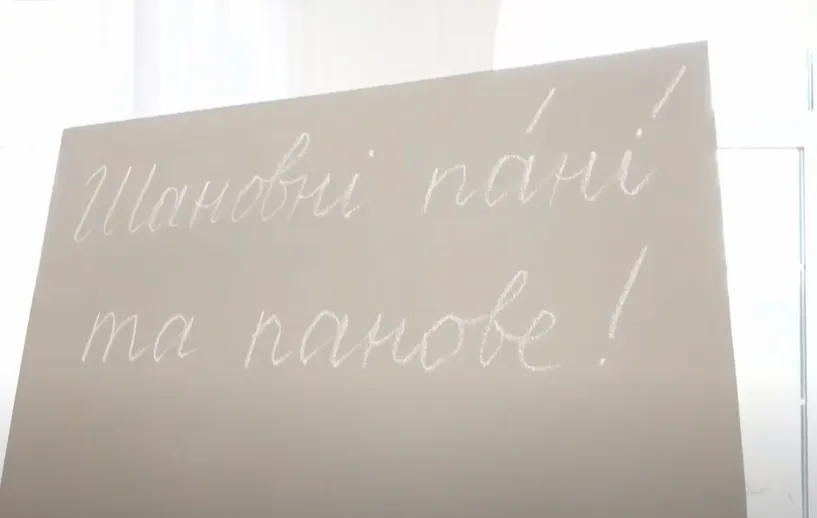 Шановні па́ні́
та панове!